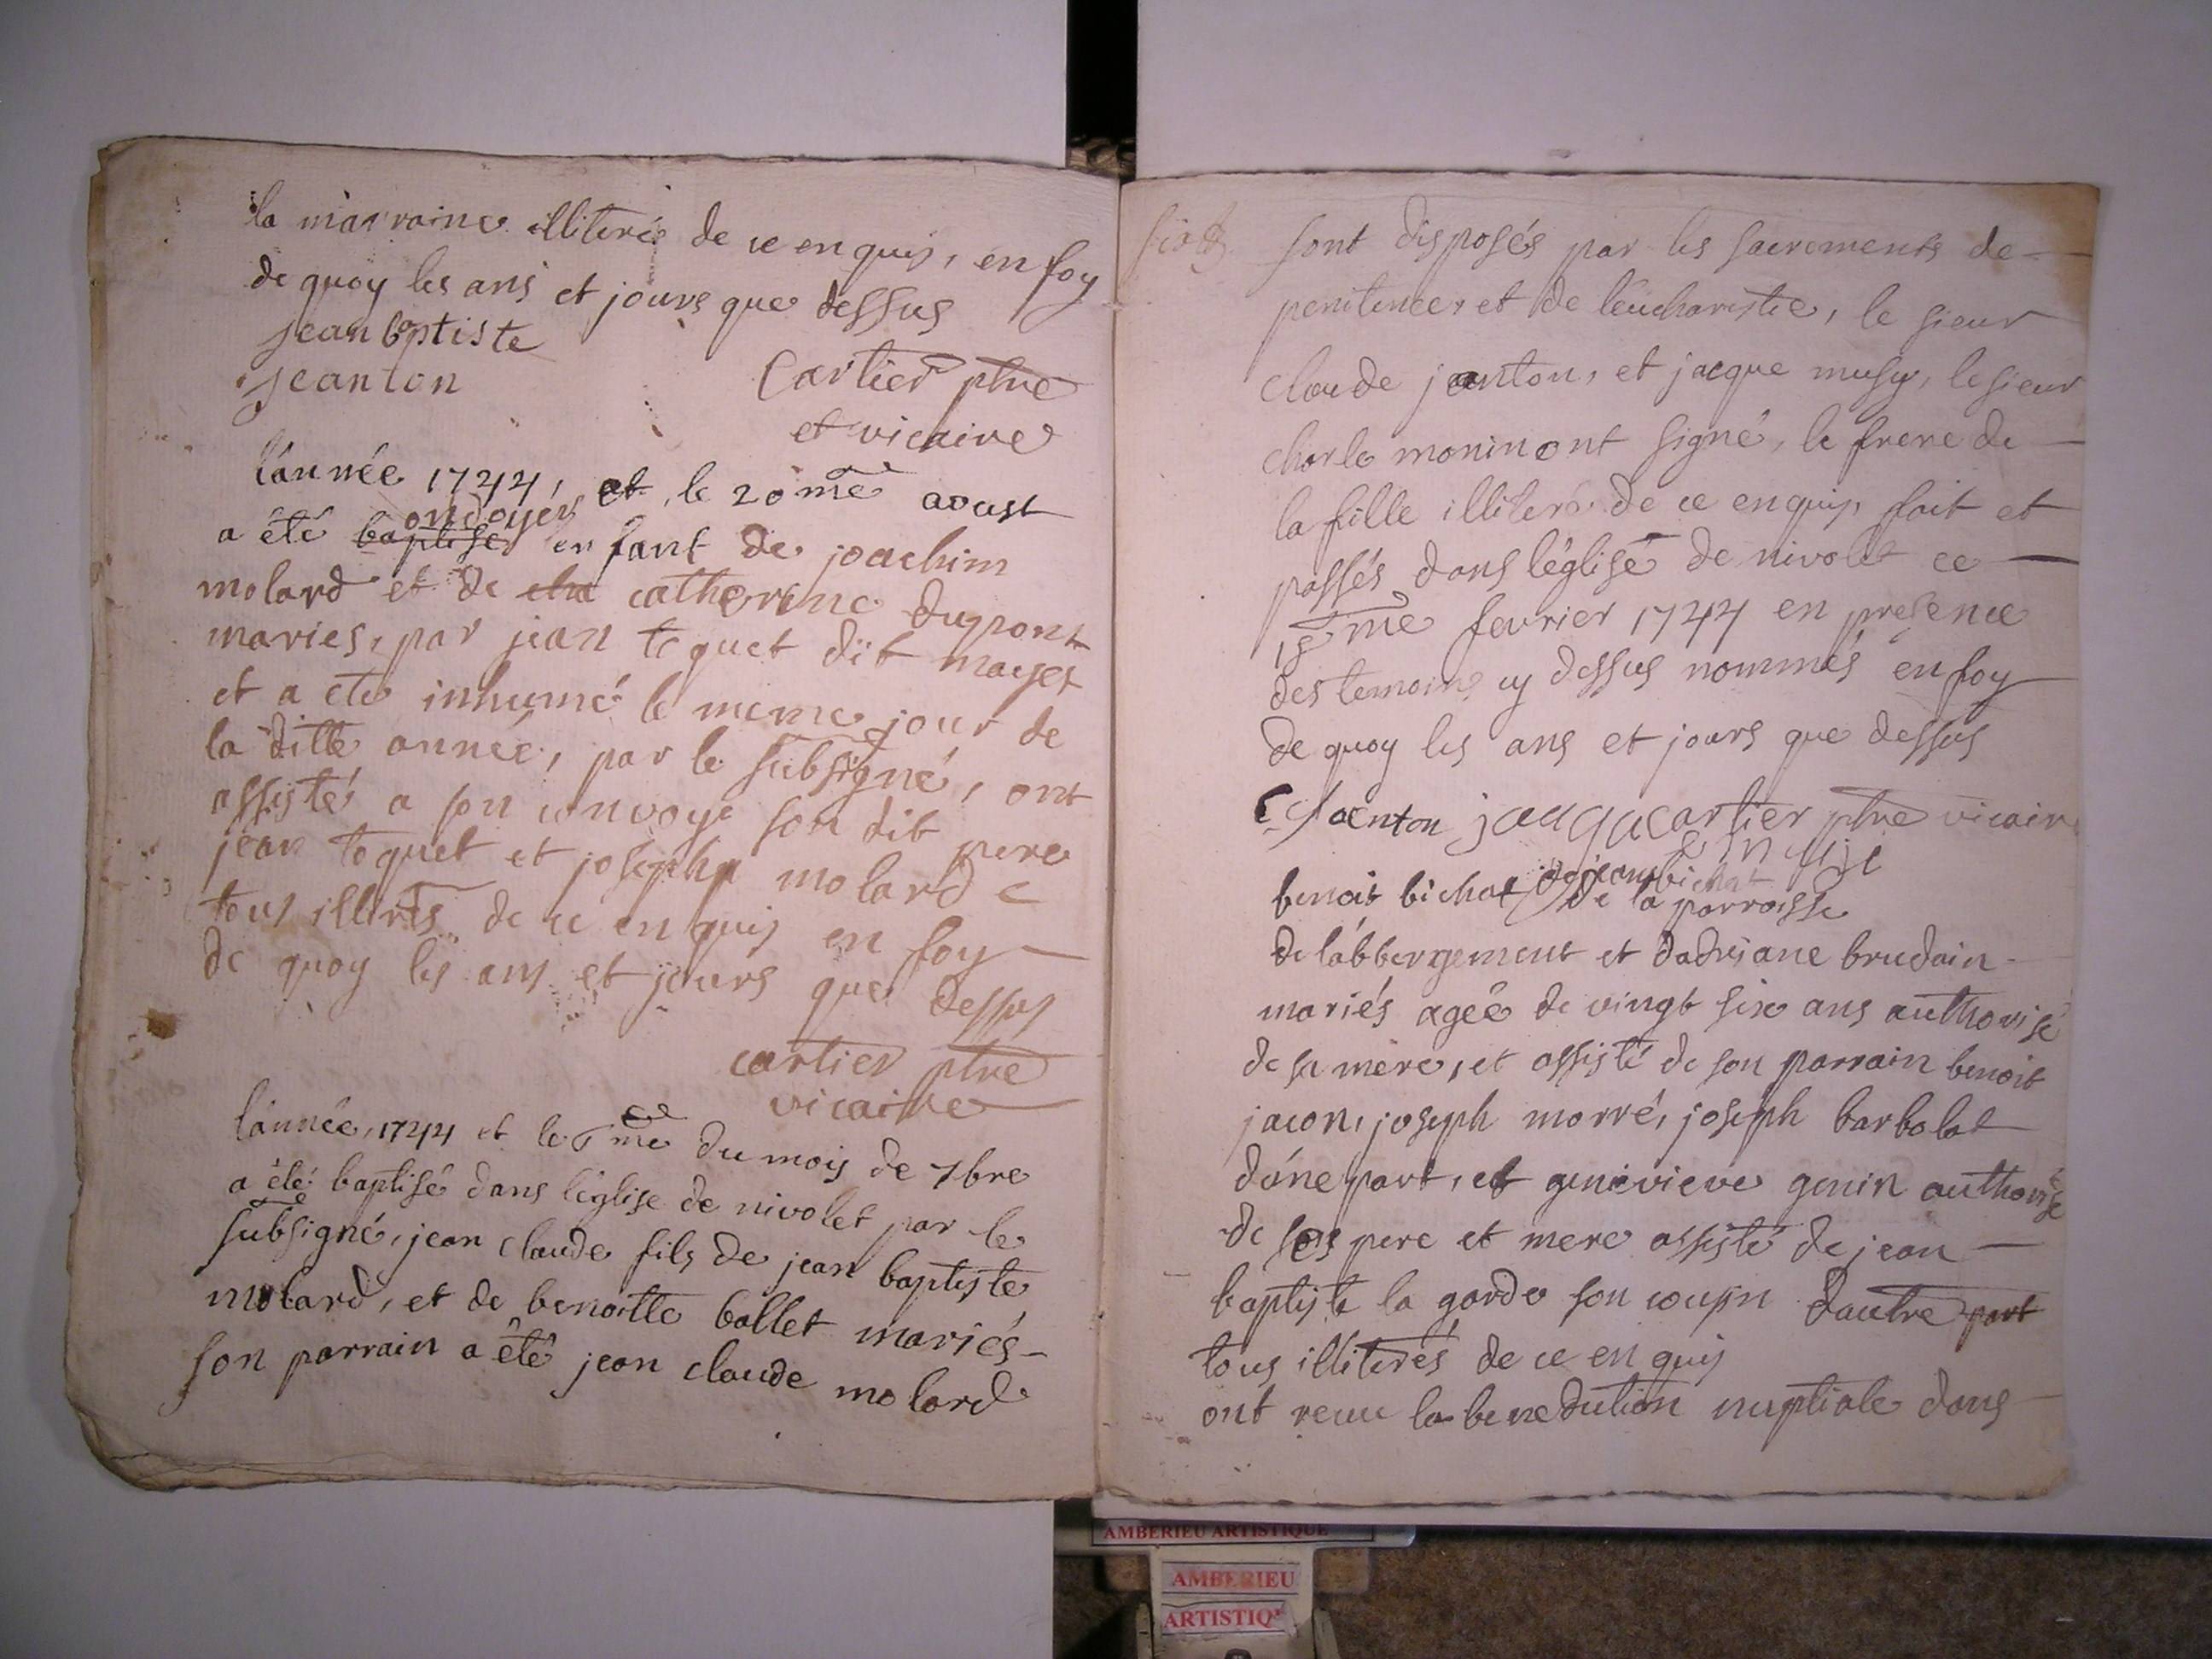 la marraine illiteré de ce enquis, en foy
de quoy les ans et jours que dessus
jean baptiste
jeanton
Cartier ptre
et vicaire
l'année 1744, et le 20 me aoust
ondoyér
a êté baptisé enfant de joachim
molard et de catherine dupont
maries, par jean toquet dit mayet
et a eté inhumé le meme jour de
la ditte année, par le subsigné, ont
assisté a son convoye son dit pere
jean toquet et joseph molard
tous illitrés de ce enquis en foy
de quoy les ans et jours que dessus
cartier ptre
vicaire
l'année, 1744 et le me du mois de 7bre
a êté baptisé dans l'eglise de nivolet par le
subsigné, jean claude fils de jean baptiste
molard, et de benoitte ballet mariés
son parrain a êtê jean claude molard
sont disposés par les sacrements de
penitence, et de l'eucharistie, le sieur
claude janton, et jacque musy, le sieur
charle monin ont signé, le frere de
la fille illiteré de ce enquis, fait et
passés dans l'église de nivolet ce
18 me fevrier 1744 en presence
des temoins cy dessus nommés en foy
de quoy les ans et jours que dessus
C janton jacque cartier ptre vicaire
benoit bichat de jean bichat
de la parroisse
de l'abbergement et dadriane brudain
mariés agée de vingt six ans authorisé
de sa mere, et assisté de son parrain benoit
jacon, joseph morré, joseph barbolat
d'úne part, et genevieve genin authorisé
de ses pere et mere assisté de jean
baptiste la garde son cousin dautre part
tous illiterés de ce enquis
ont recue la benediction nuptiale dans
AMBERIEU ARTISTIQUE
AMBERIEU
ARTISTIQ